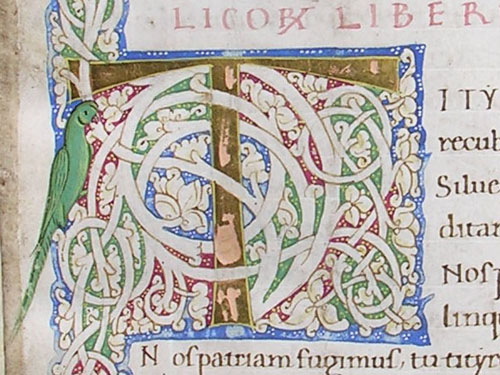 LICOꝜ LIBER
T
ITY
recub
Silue
ditar
Nosp
linqu
Nos patriam fugimus, tu tityr